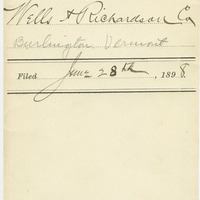 Wells & Richardson Co
Burlington Vermont
Filed June 28th, 1898.